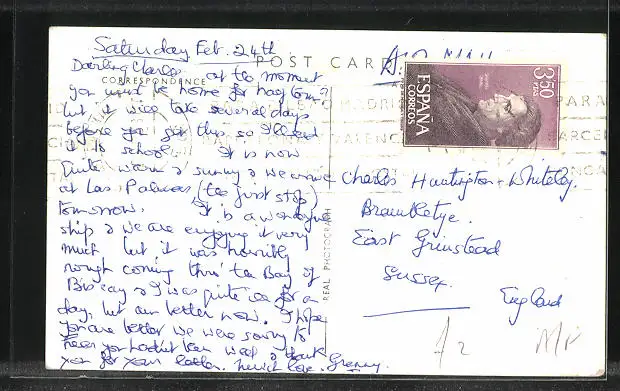 Saturday Feb. 24th
POST CARD
AIR MAIL
CORRESPONDENCE
Darling Charles at the moment
you must be home for half term?
but it will take several days
before you get this so I'll send
it to school. It is now
quite warm & sunny & we arrive
at Las Palmas (the first stop)
tomorrow. It is a wonderful
ship & we are enjoying it very
much but it was horribly
rough coming thro' the Bay of
Biscay & I was quite ill for a
day, but am better now. I hope
you are better we were sorry to
hear you hadn't been well & thank
you for your letter. much love. Granny.
REAL PHOTOGRAPH
3'50
PTAS
ESPAÑA
CORREOS
Charles Huntington-Whiteley.
Brambletye.
East Grinstead
Sussex.
England